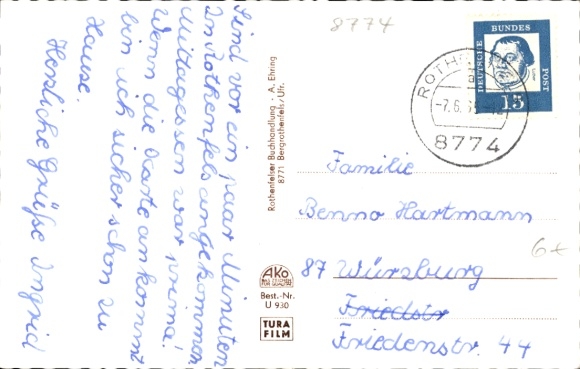 Sind vor ein paar Minuten
in Rothenfels angekommen
Mittagessen war prima!
Wenn die Karte ankommt
bin ich sicher schon zu
Hause.
Herzliche Grüße Ingrid
Rothenfelser Buchhandlung - A. Ehring
8771 Bergrothenfels/Ufr.
AKO
Best.-Nr.
U 930
TURA
FILM
8774
DEUTSCHE
BUNDES
POST
15
-7.6.
8774
Familie
Benno Hartmann
6x
87 Würzburg
Friedstr
Friedenstr. 44